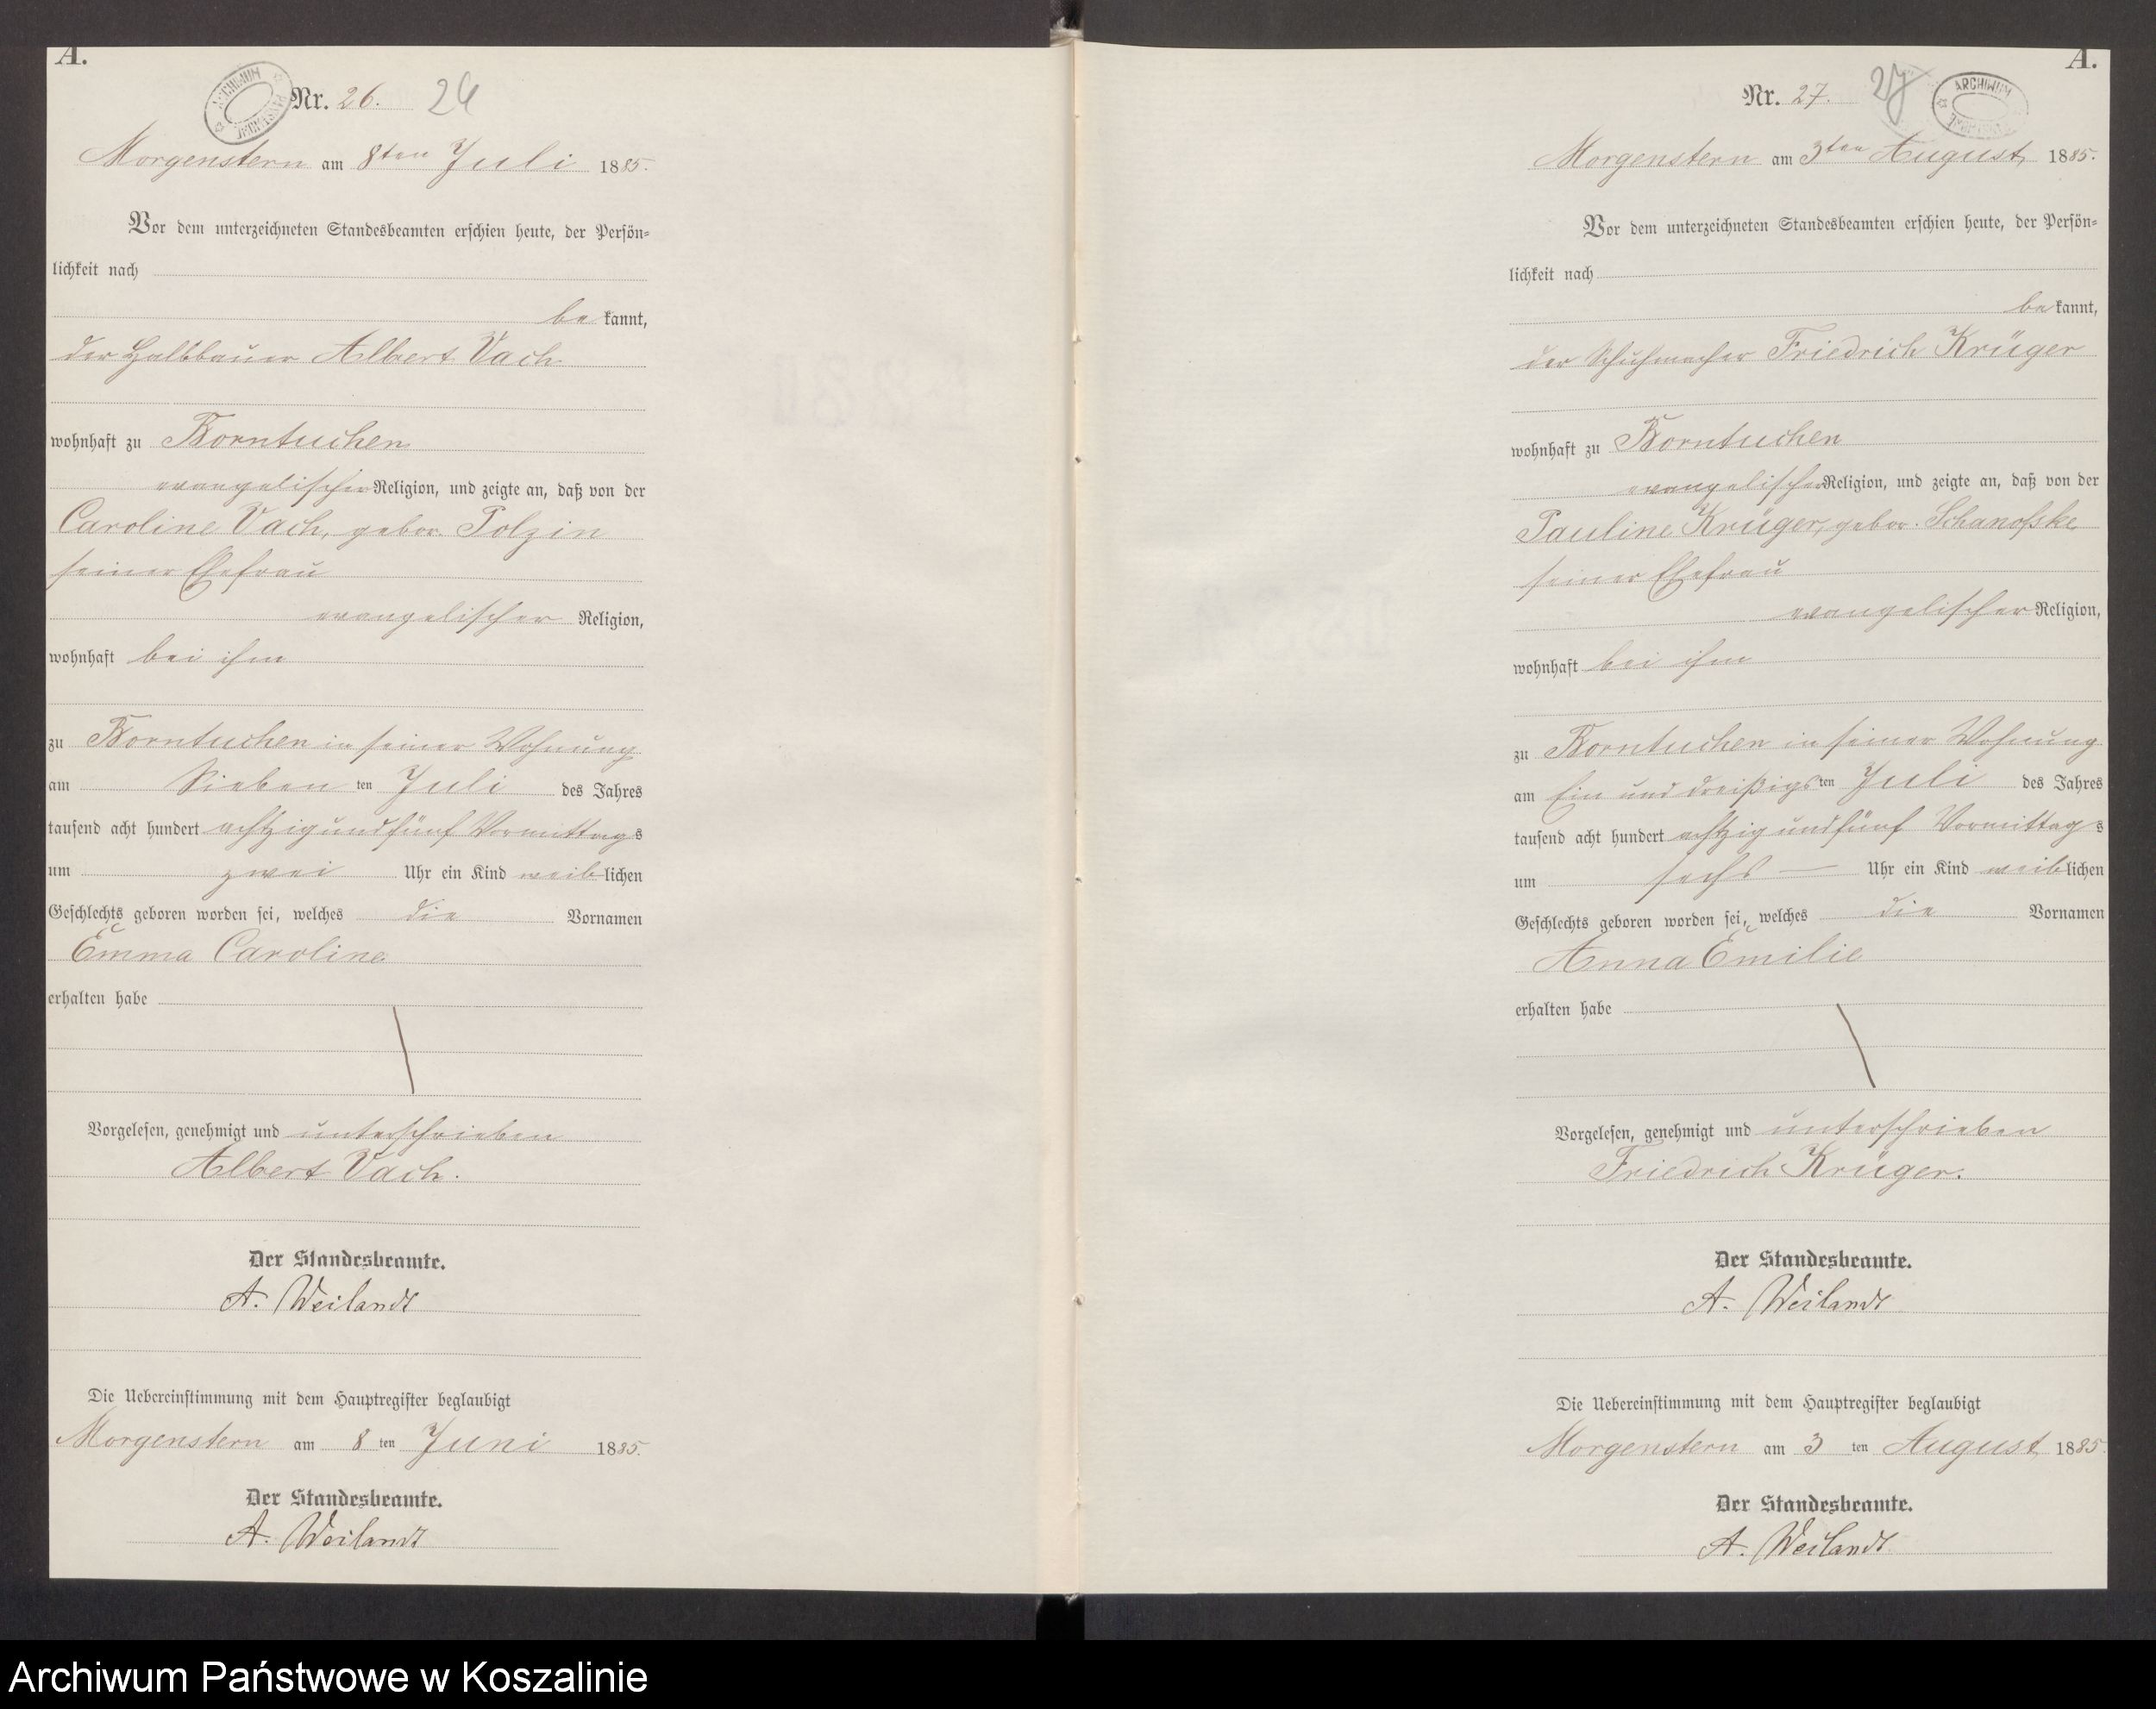 A.
Nr. 26. 26
Morgenstern am 8ten Juli 1885.
Vor dem unterzeichneten Standesbeamten erschien heute, der Persön-
lichkeit nach
be kannt,
der Halbbauer Albert Vach
wohnhaft zu Borntuchen
evangelischer Religion, und zeigte an, daß von der
Caroline Vach, gebor. Polzin
seiner Ehefrau
evangelischer Religion,
wohnhaft bei ihm
zu Borntuchen in seiner Wohnung
am Sieben ten Juli des Jahres
tausend acht hundert achtzig und fünf Vormittags
um zwei Uhr ein Kind weiblichen
Geschlechts geboren worden sei, welches die Vornamen
Emma Caroline
erhalten habe
Vorgelesen, genehmigt und unterschrieben
Albert Vach.
Der Standesbeamte.
A. Weilandt
Die Uebereinstimmung mit dem Hauptregister beglaubigt
Morgenstern am 8 ten Juni 1885.
Der Standesbeamte.
A. Weilandt
A.
Nr. 27. 27
ARCHIWUM
Morgenstern am 3ten August 1885.
Vor dem unterzeichneten Standesbeamten erschien heute, der Persön-
lichkeit nach
be kannt,
der Schuhmacher Friedrich Krüger
wohnhaft zu Borntuchen
evangelischer Religion, und zeigte an, daß von der
Pauline Krüger, gebor. Schanofske
seiner Ehefrau
evangelischer Religion,
wohnhaft bei ihm
zu Borntuchen in seiner Wohnung
am Ein und dreißigsten Juli des Jahres
tausend acht hundert achtzig und fünf Vormittags
um sechs — Uhr ein Kind weiblichen
Geschlechts geboren worden sei, welches die Vornamen
Anna Emilie
erhalten habe
Vorgelesen, genehmigt und unterschrieben
Friedrich Krüger.
Der Standesbeamte.
A. Weilandt
Die Uebereinstimmung mit dem Hauptregister beglaubigt
Morgenstern am 3 ten August 1885.
Der Standesbeamte.
A. Weilandt
Archiwum Państwowe w Koszalinie